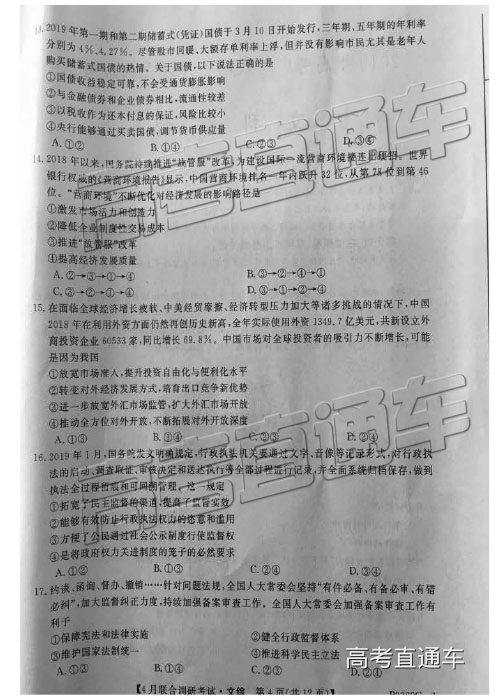 13. 2019年第一期和第二期储蓄式(凭证)国债于3月10日开始发行,三年期、五年期的年利率
分别为4%、4.27%。尽管股市回暖、大额存单利率上浮,但并没有影响市民尤其是老年人
购买储蓄式国债的热情。关于国债,以下说法正确的是
①国债收益稳定可靠,不会受通货膨胀影响
②与金融债券和企业债券相比,流通性较差
③以税收作为还本付息的保证,风险比较小
④央行能够通过买卖国债,调节货币供应量
A. ①② B. ①④ C. ②③ D. ③④
14. 2018年以来,国务院持续推进“放管服”改革,为建设国际一流营商环境接连出硬招。世界
银行权威的《营商环境报告》显示,中国营商环境排名一年内跃升32位,从第78位到第46
位。“营商环境”不断优化对经济发展的影响路径是
①激发市场活力和创造力
②降低企业制度性交易成本
③推进“放管服”改革
④提高经济发展质量
A. ②→③→①→④ B. ③→④→②→①
C. ②→③→④→① D. ③→②→①→④
15. 在面临全球经济增长疲软、中美经贸摩擦、经济转型压力加大等诸多挑战的情况下,中国
2018年在利用外资方面仍然再创历史新高,全年实际使用外资1349.7亿美元,共新设立外
商投资企业60533家,同比增长69.8%。中国市场对全球投资者的吸引力不断增长,可能
是因为我国
①放宽市场准入,提升投资自由化与便利化水平
②转变对外经济发展方式,培育出口竞争新优势
③进一步放宽外汇市场监管,扩大外汇市场开放
④推动全方位对外开放,不断拓展对外开放深度
A. ①③ B. ①④ C. ②③ D. ②④
16. 2019年1月,国务院发文明确规定,行政执法机关要通过文字、音像等记录形式,对行政执
法的启动、调查取证、审核决定和送达执行等全部过程进行记录,并全面系统归档保存,做到
执法全过程留痕和可回溯管理。这一规定
①拓宽了民主监督的渠道,提高了监督实效
②能够有效防止行政执法权力的恣意和滥用
③方便了公民通过社会公示制度行使监督权
④是将政府权力关进制度的笼子的必然要求
A. ①② B. ①③ C. ②④ D. ③④
17. 约谈、函询、督办、撤销……针对问题法规,全国人大常委会坚持“有件必备、有备必审、有错
必纠”,加大监督纠正力度,持续加强备案审查工作。全国人大常委会加强备案审查工作有
利于
①保障宪法和法律实施 ②健全行政监督体系
③维护国家法制统一 ④推进科学民主立法
A. ①③ B. ①④ C. ②③ D. ②④
【4月联合调研考试·文综 第4页(共12页)】
高考直通车
高考直通车
高考直通车
高考直通车